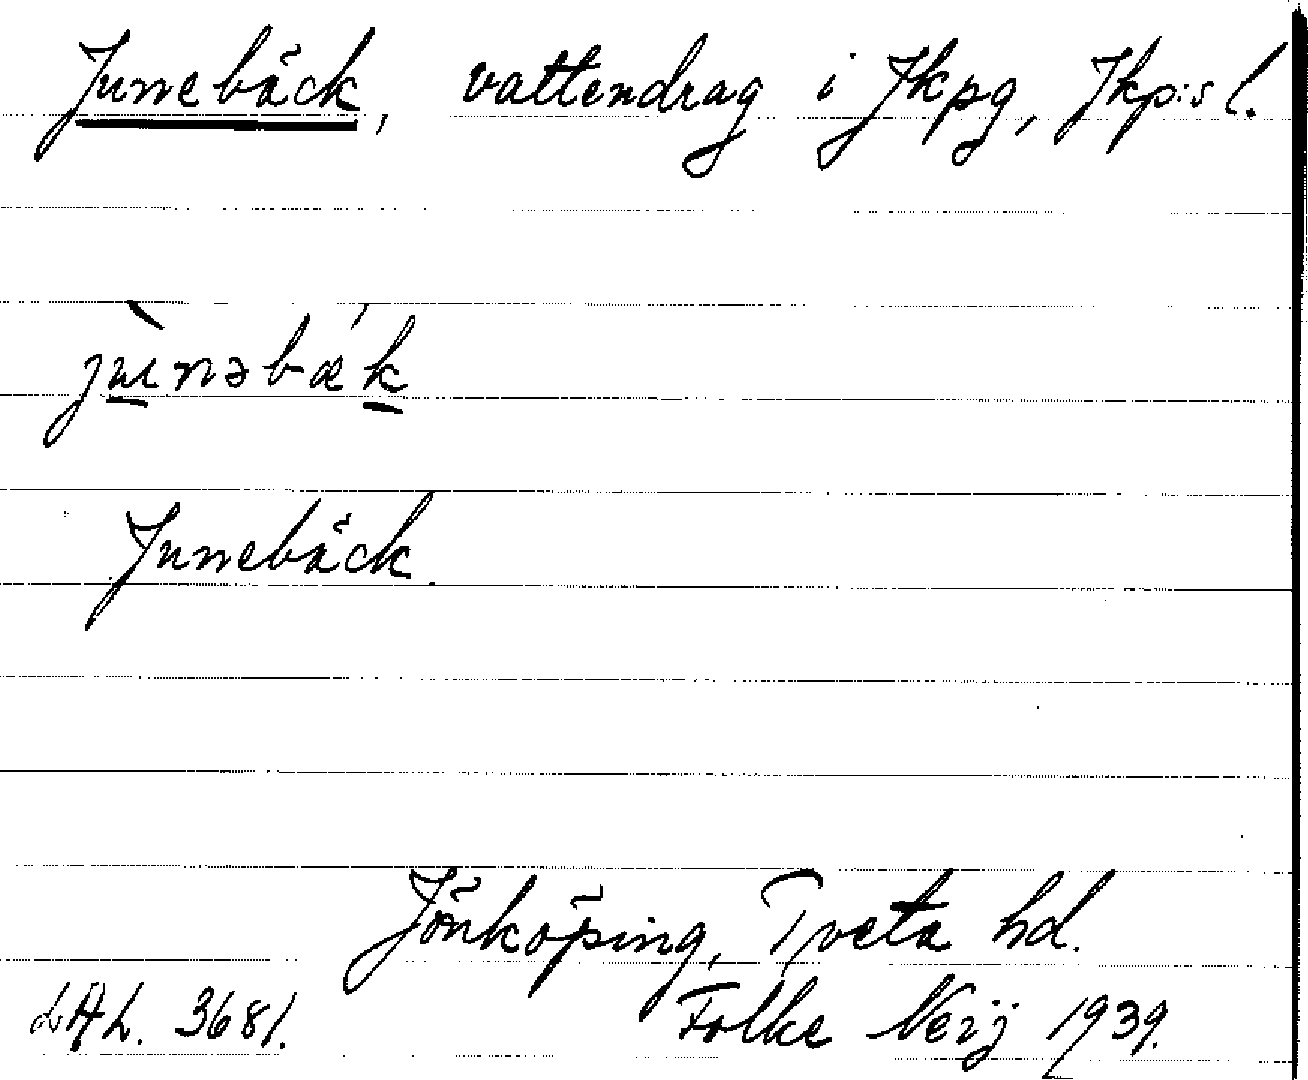 Junebäck, vattendrag i Jkpg, Jkp:s l.
jùnəbǽk
Junebäck.
Jönköping, Tveta hd.
LAL. 3681. Folke Neij 1939.